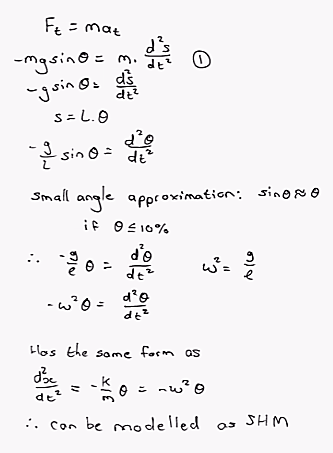 F_t = ma_t
-mg sin θ = m. d²s/dt² ①
-g sin θ = d²s/dt²
s = L.θ
-g/L sin θ = d²θ/dt²
small angle approximation: sin θ ≈ θ
if θ ≤ 10%
∴ -g/l θ = d²θ/dt² ω² = g/l
-ω²θ = d²θ/dt²
Has the same form as
d²x/dt² = -k/m θ = -ω²θ
∴ can be modelled as SHM